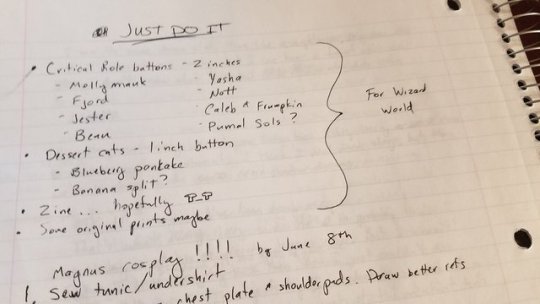 JUST DO IT
• Critical Role buttons - 2 inches
- Mollymauk
- Fjord
- Jester
- Beau
- Yasha
- Nott
- Caleb & Frumpkin
- Pumat Sols ?
• Dessert cats - 1 inch button
- Blueberry pankake
- Banana split?
• Zine ... hopefully T_T
• Some original prints maybe
For Wizard
World
Magnus cosplay !!!! by June 8th
1. Sew tunic/undershirt
chest plate & shoulder pads. Draw better refs